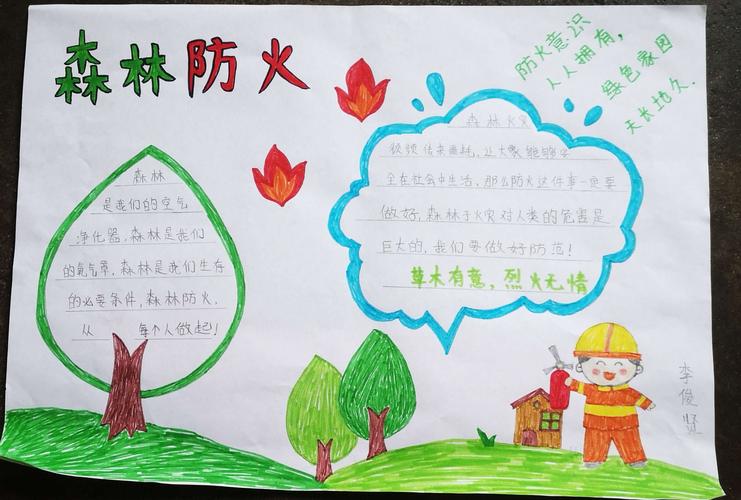 森林防火
防火意识
人人拥有,
绿色家园
天长地久.
森林
是我们的空气
净化器,森林是我们
的氧气罩,森林是我们生存
的必要条件,森林防火,
从 每个人做起!
森林火灾
频频传来噩耗,让大家能够安
全在社会中生活,那么防火这件事一定要
做好,森林于火灾对人类的危害是
巨大的,我们要做好防范!
草木有意,烈火无情
李俊贤